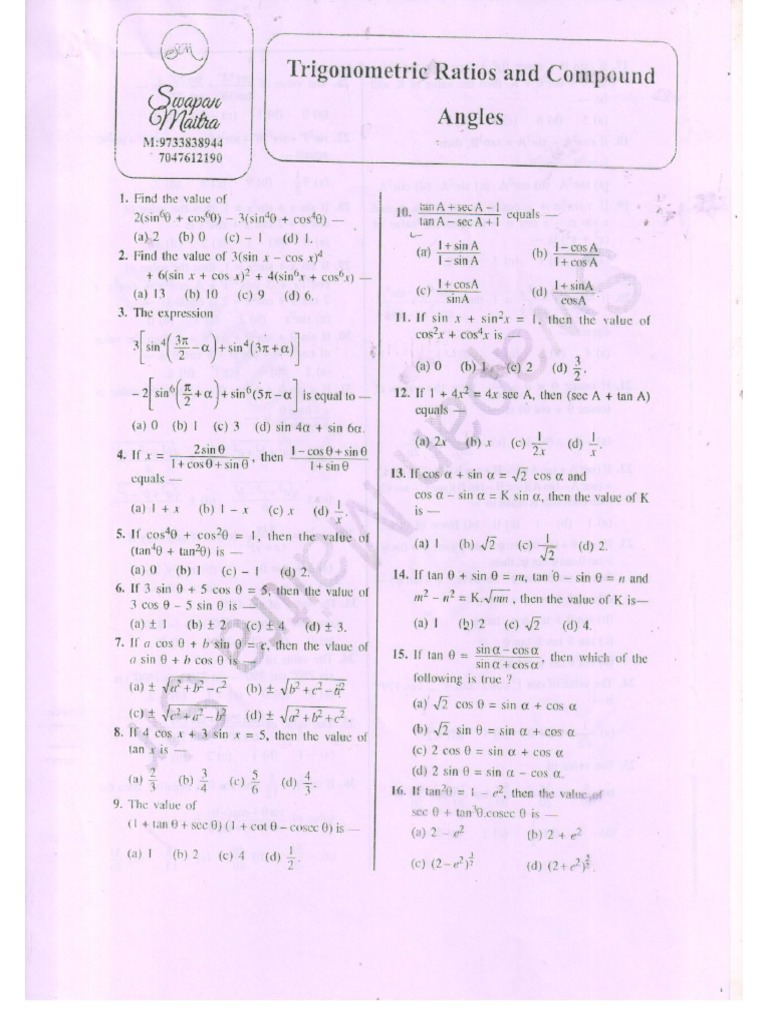 SM
Swapan
Maitra
M:9733838944
7047612190
Trigonometric Ratios and Compound
Angles
1. Find the value of
2(sin⁶θ + cos⁶θ) – 3(sin⁴θ + cos⁴θ) —
(a) 2 (b) 0 (c) – 1 (d) 1.
2. Find the value of 3(sin x – cos x)⁴
+ 6(sin x + cos x)² + 4(sin⁶x + cos⁶x) —
(a) 13 (b) 10 (c) 9 (d) 6.
3. The expression
3[sin⁴(3π/2 – α) + sin⁴(3π + α)]
– 2[sin⁶(π/2 + α) + sin⁶(5π – α)] is equal to —
(a) 0 (b) 1 (c) 3 (d) sin 4α + sin 6α.
4. If x = 2sin θ / 1 + cos θ + sin θ, then 1 – cos θ + sin θ / 1 + sin θ
equals —
(a) 1 + x (b) 1 – x (c) x (d) 1/x.
5. If cos⁴θ + cos²θ = 1, then the value of
(tan⁴θ + tan²θ) is —
(a) 0 (b) 1 (c) – 1 (d) 2.
6. If 3 sin θ + 5 cos θ = 5, then the value of
3 cos θ – 5 sin θ is —
(a) ± 1 (b) ± 2 (c) ± 4 (d) ± 3.
7. If a cos θ + b sin θ = c, then the vlaue of
a sin θ + b cos θ is
(a) ± √(a² + b² – c²) (b) ± √(b² + c² – a²)
(c) ± √(c² + a² – b²) (d) ± √(a² + b² + c²).
8. If 4 cos x + 3 sin x = 5, then the value of
tan x is —
(a) 2/3 (b) 3/4 (c) 5/6 (d) 4/3.
9. The value of
(1 + tan θ + sec θ) (1 + cot θ – cosec θ) is —
(a) 1 (b) 2 (c) 4 (d) 1/2.
10. tan A + sec A – 1 / tan A – sec A + 1 equals —
(a) 1 + sin A / 1 – sin A (b) 1 – cos A / 1 + cos A
(c) 1 + cosA / sinA (d) 1 + sinA / cosA.
11. If sin x + sin²x = 1, then the value of
cos²x + cos⁴x is —
(a) 0 (b) 1 (c) 2 (d) 3/2.
12. If 1 + 4x² = 4x sec A, then (sec A + tan A)
equals —
(a) 2x (b) x (c) 1/2x (d) 1/x.
13. If cos α + sin α = √2 cos α and
cos α – sin α = K sin α, then the value of K
is —
(a) 1 (b) √2 (c) 1/√2 (d) 2.
14. If tan θ + sin θ = m, tan θ – sin θ = n and
m² – n² = K.√mn, then the value of K is—
(a) 1 (b) 2 (c) √2 (d) 4.
15. If tan θ = sin α – cos α / sin α + cos α, then which of the
following is true ?
(a) √2 cos θ = sin α + cos α
(b) √2 sin θ = sin α + cos α
(c) 2 cos θ = sin α + cos α
(d) 2 sin θ = sin α – cos α.
16. If tan²θ = 1 – e², then the value of
sec θ + tan³θ.cosec θ is —
(a) 2 – e² (b) 2 + e²
(c) (2 – e²)^(3/2) (d) (2 + e²)^(3/2).
Swapan Maitra Sir